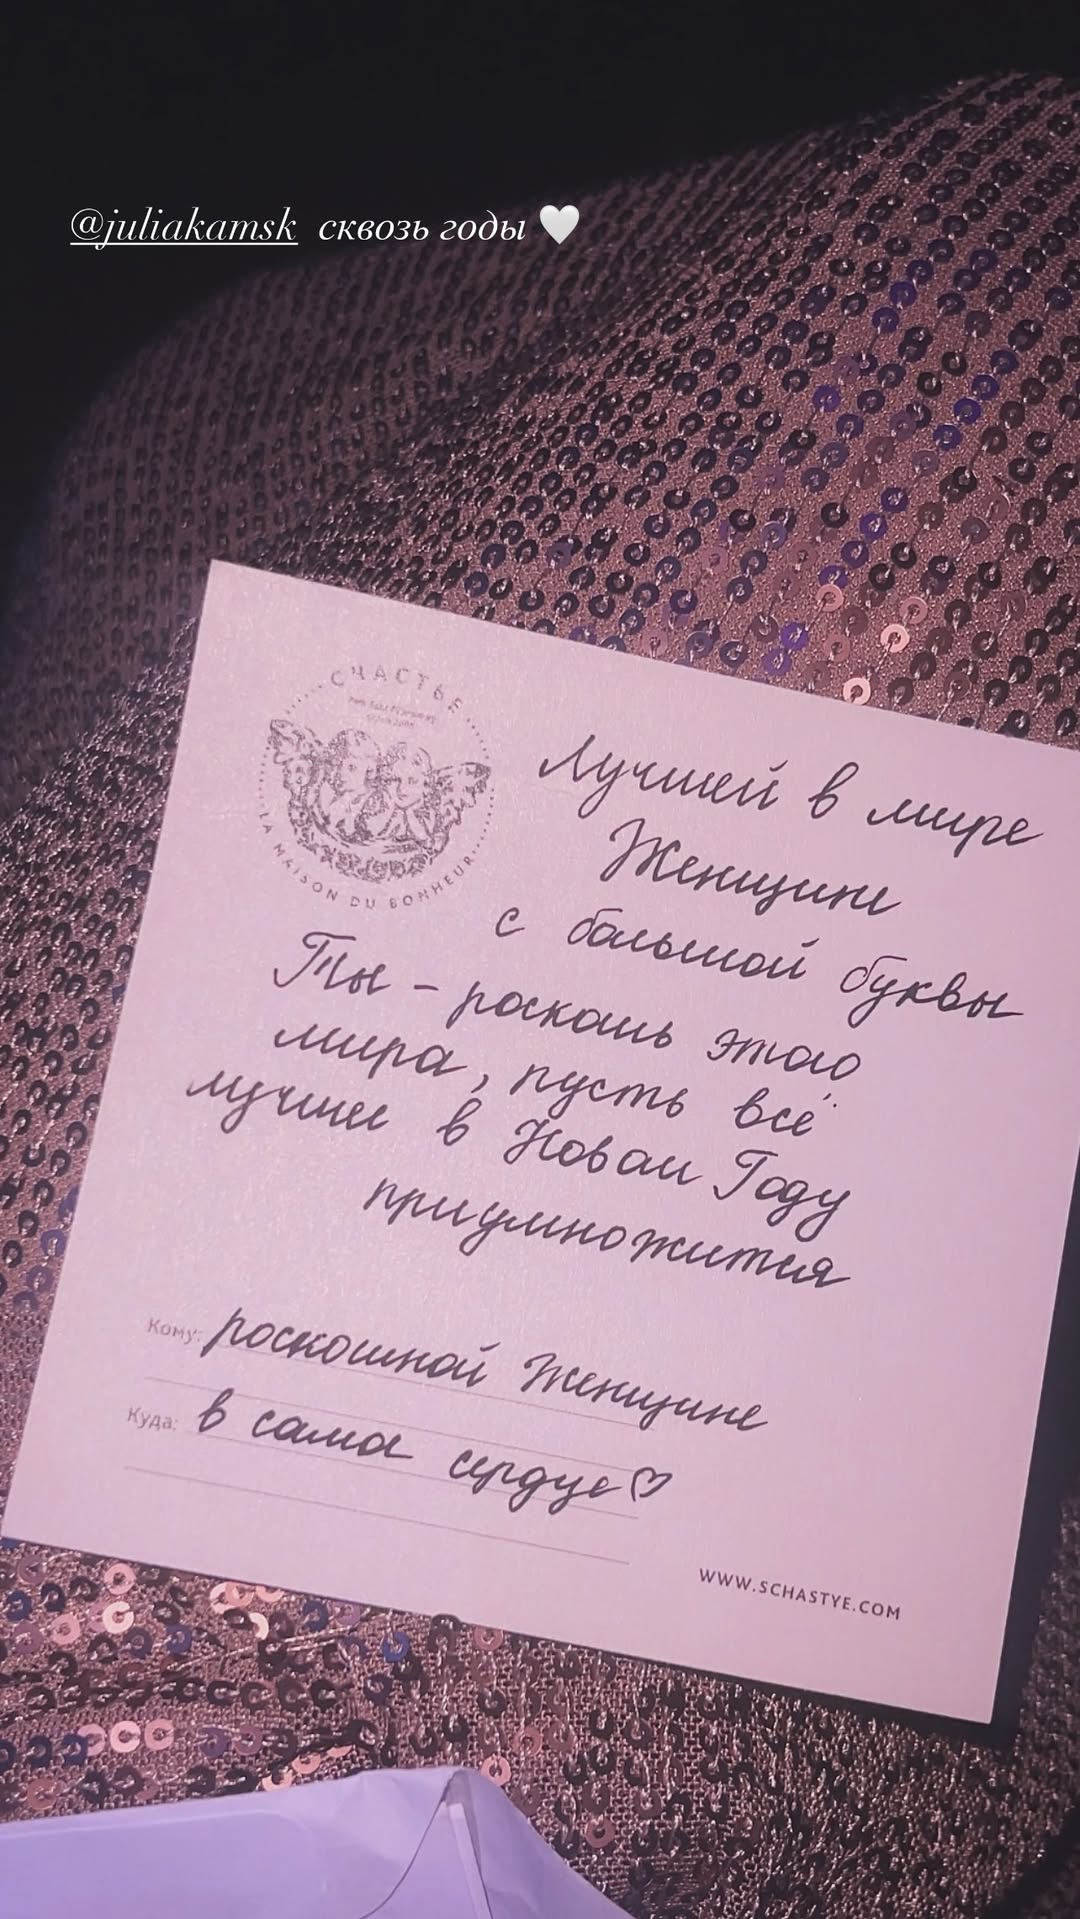 @juliakamsk сквозь годы 🤍
СЧАСТЬЕ
LA MAISON DU BONHEUR
Лучшей в мире
Женщине
с большой буквы
Ты – роскошь этого
мира, пусть всё
лучшее в Новом Году
приумножится
Кому: роскошной Женщине
Куда: в самое сердце♡
WWW.SCHASTYE.COM